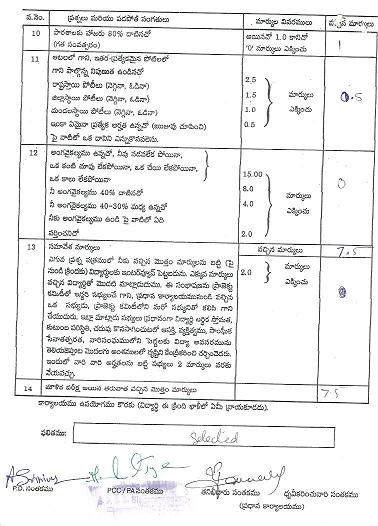 వ.నెం. ప్రశ్నలు మరియు పదపోత సంగతులు మార్కుల వివరములు మార్కులు
10 పాఠశాలకు హాజరు 80% దాటినచో అయినచో 1.0 కానిచో 1
(గత సంవత్సరం) '0' మార్కులు ఎక్కించు
11 ఆటలలో గాని, ఇతర-ప్రత్యేకమైన పోటీలలో
గాని పాల్గొన్న నిపుణత ఉండినచో 2.5
రాష్ట్రస్థాయి పోటీలు (నెగ్గినా, ఓడినా) 1.5 మార్కులు 0.5
జిల్లాస్థాయి పోటీలు (నెగ్గినా, ఓడినా)
మండలస్థాయి పోటీలు (నెగ్గినా, ఓడినా) 1.0 ఎక్కించు
ఇంకా ఏమైనా ప్రత్యేక అర్హత ఉన్నచో (ఋజువు చూపించి) 0.5
పై వాటిలో ఒక దానిని ఎన్నుకొనవలెను.
12 అంగవైకల్యము ఉన్నచో, నీవు నడవలేక పోయినా,
ఒక కంటి చూపు లేకపోయినా, ఒక చేయి లేకపోయినా 15.00 0
ఒక కాలు లేకపోయినా 8.0 మార్కులు
నీ అంగవైకల్యము 40% దాటినచో 4.0
నీ అంగవైకల్యము 40-30% మధ్య ఉన్నచో ఎక్కించు
నీకు అంగవైకల్యము ఉండి పై వాటిలో ఏది 2.0
వర్తించనిచో
13 సమావేశ మార్కులు వచ్చిన మార్కులు 7.5
ఎగువ ప్రశ్న పత్రములో నీకు వచ్చిన మొత్తం మార్కులను బట్టి (పై 2.0 మార్కులు
నుండి క్రిందకు) విద్యార్థులకు ఇంటర్వ్యూస్ పెట్టబడును. ఎక్కువ మార్కులు ఎక్కించు 0
వచ్చిన విద్యార్థితో మొదటి మాట్లాడుదుము. ఈ సంభాషణను ప్రాజెక్టు
కమిటీలో ఇద్దరి సభ్యుల చే గాని, ప్రధాన కార్యాలయమునుండి వచ్చిన
ఒక సభ్యుడు, ప్రాజెక్టు కమిటీలోని మరో సభ్యునితో కలిసి గాని
చేయుదురు. ఇట్లా మాట్లాడు సభ్యులు ప్రధానంగా విద్యార్థి ఆర్థిక స్తోమత,
కుటుంబ పరిస్థితి, చదువు కొనసాగించుటలో ఆసక్తి, వ్యక్తిత్వము, సాంఘీక
సేవాతత్పరత, వారిసంఘములోని పెద్దలకు విద్యా ఆవసరమును
ఇందులో వారి వారి అర్హతలను బట్టి సభ్యులు 2 మార్కులు వరకు
వేయవచ్చు.
14 మౌఖిక పరీక్ష అయిన తరువాత వచ్చిన మొత్తం మార్కులు 7.5
కార్యాలయము ఉపయోగము కొరకు (విద్యార్థి ఈ క్రింది ఖాళీలో ఏమీ వ్రాయకూడదు).
ఫలితము: Selected
P.D. సంతకము PCC/PA సంతకము తనిఖీదారు సంతకము ధృవీకరించువారి సంతకము
(ప్రధాన కార్యాలయము)